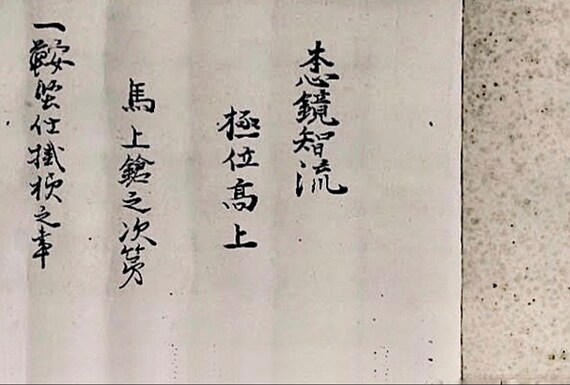 本心鏡智流
極位高上
馬上鎗之次第
一鞍堅仕掛様之事